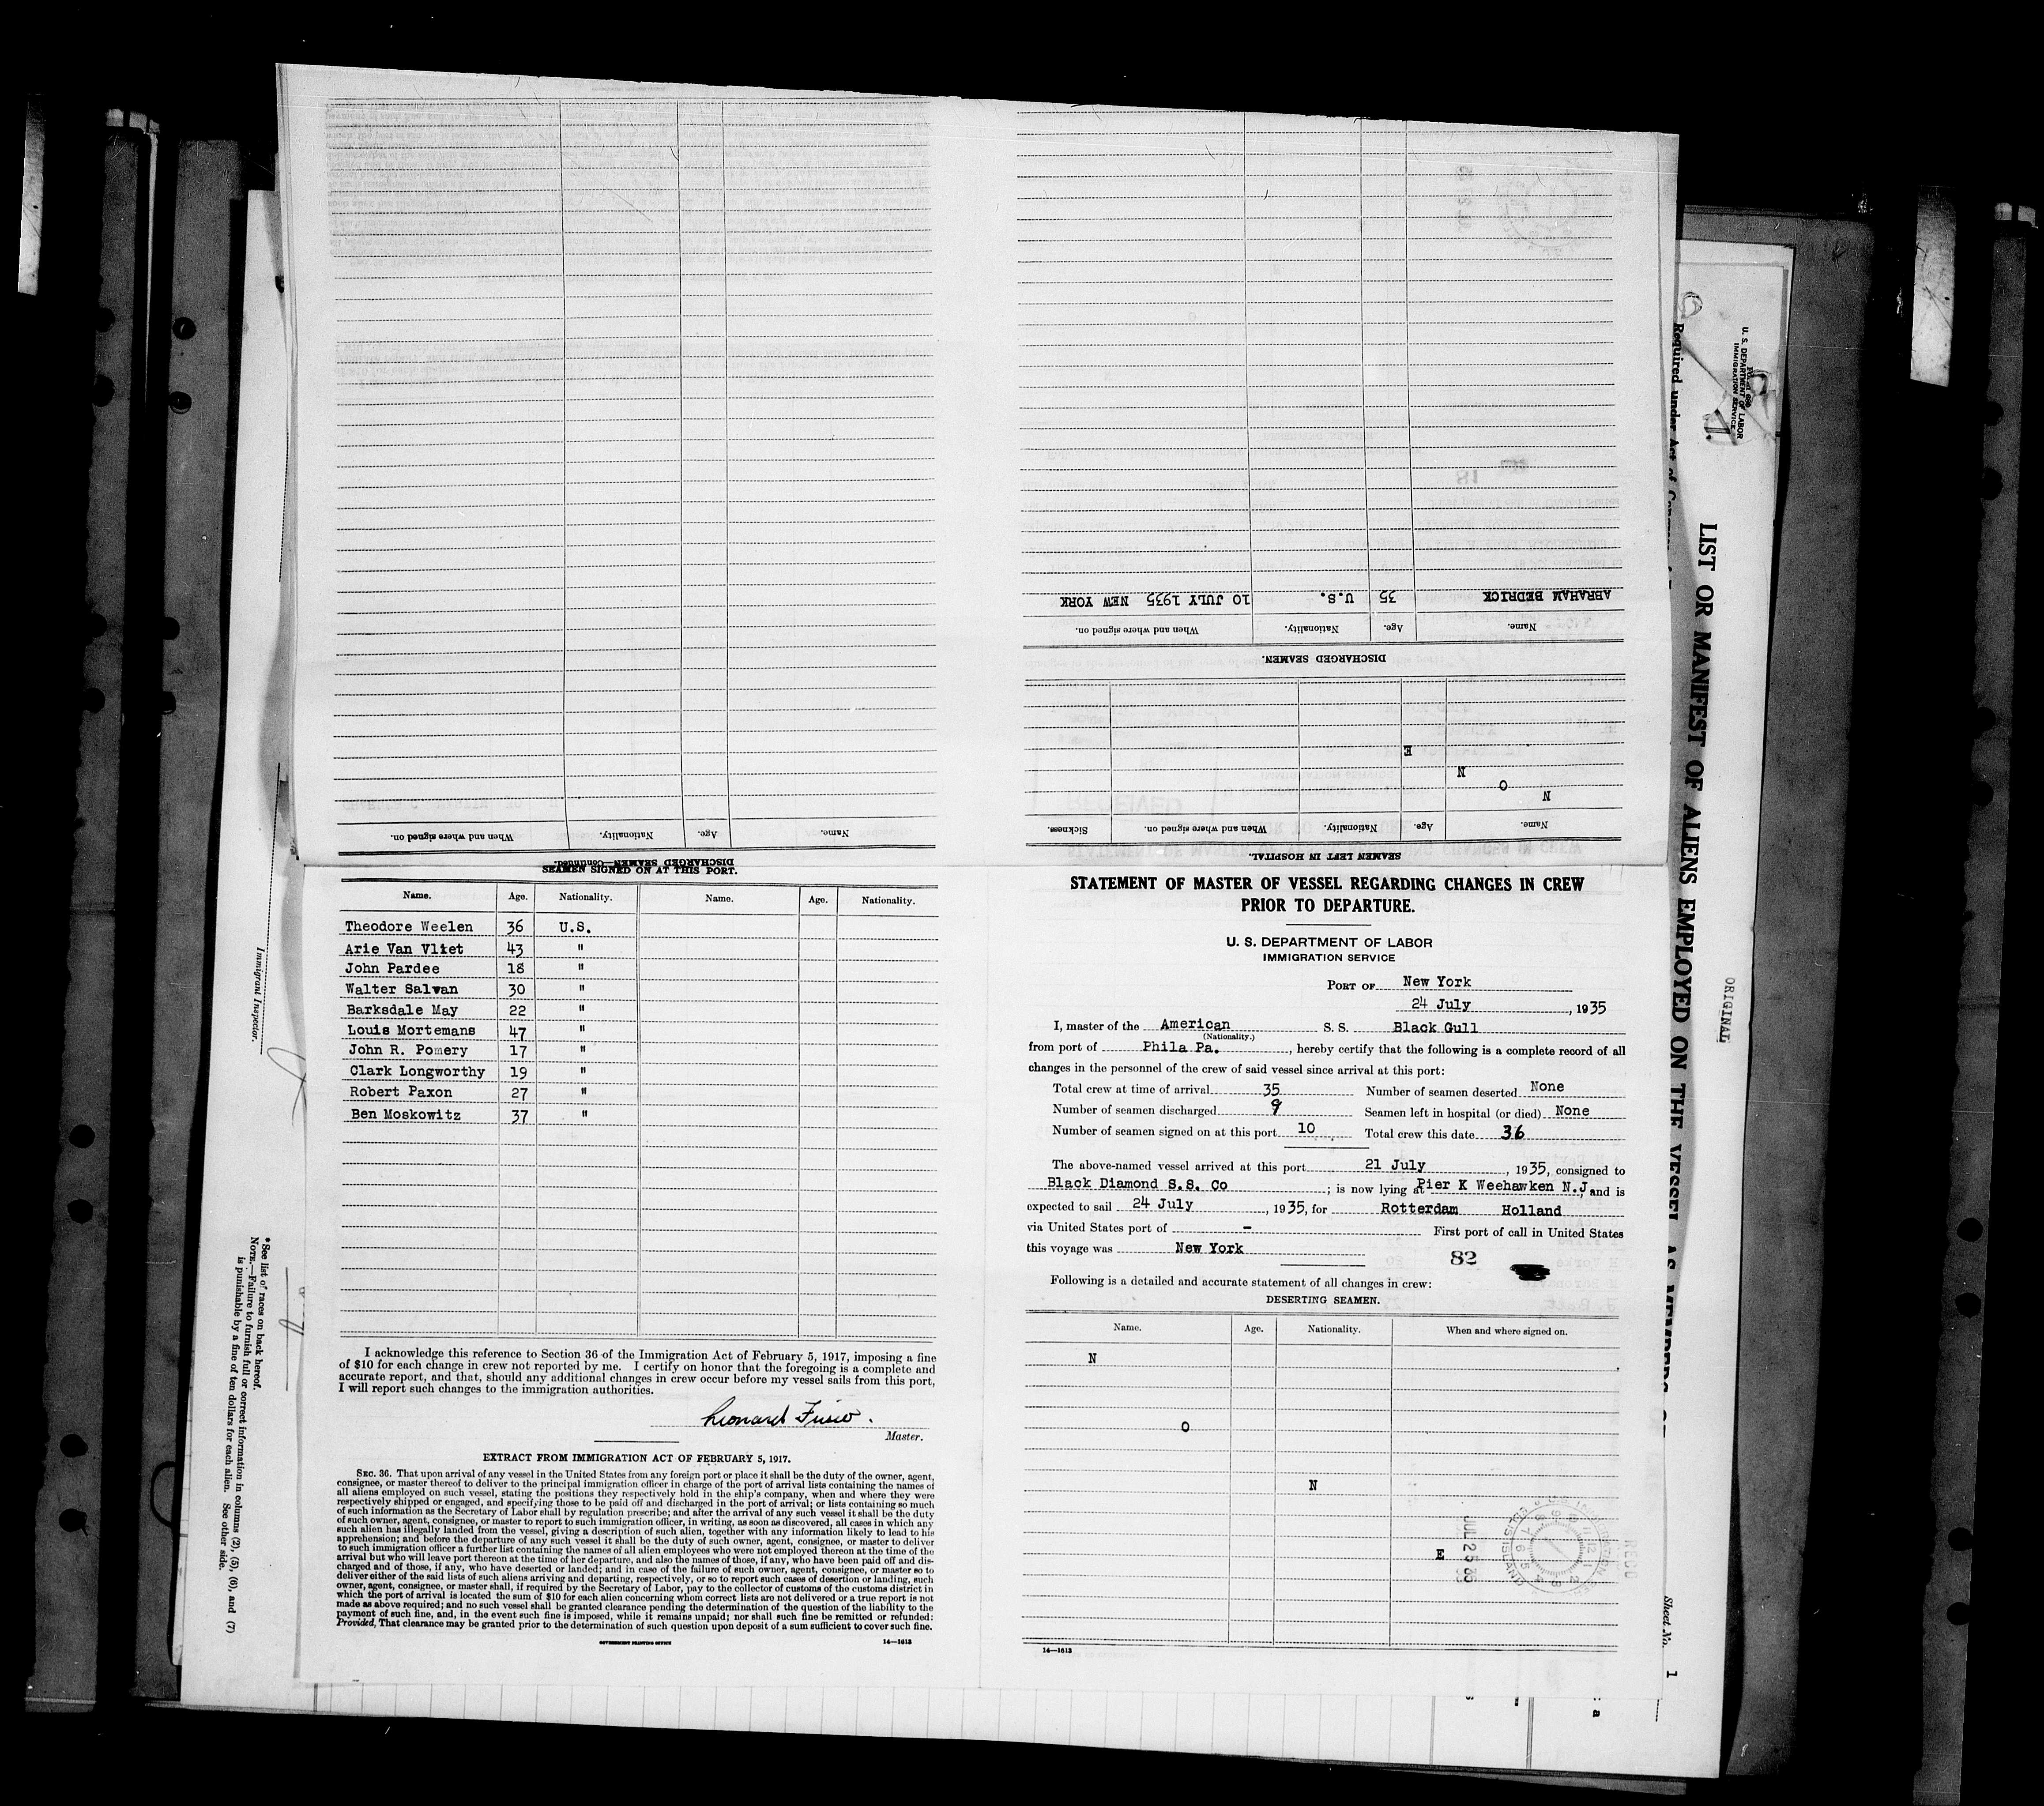 DISCHARGED SEAMEN—Continued.
Name. Age. Nationality. When and where signed on.
SEAMEN LEFT IN HOSPITAL.
Name. Age. Nationality. When and where signed on. Sickness.
N
O
N
E
DISCHARGED SEAMEN.
Name. Age. Nationality. When and where signed on.
ABRAHAM BEDRICK 35 U.S. 10 JULY 1935 NEW YORK
SEAMEN SIGNED ON AT THIS PORT.
Name. Age. Nationality. Name. Age. Nationality.
Theodore Weelen 36 U.S.
Arie Van Vliet 43 "
John Pardee 18 "
Walter Salvan 30 "
Barksdale May 22 "
Louis Mortemans 47 "
John R. Pomery 17 "
Clark Longworthy 19 "
Robert Paxon 27 "
Ben Moskowitz 37 "
I acknowledge this reference to Section 36 of the Immigration Act of February 5, 1917, imposing a fine
of $10 for each change in crew not reported by me. I certify on honor that the foregoing is a complete and
accurate report, and that, should any additional changes in crew occur before my vessel sails from this port,
I will report such changes to the immigration authorities.
Leonard
Master.
EXTRACT FROM IMMIGRATION ACT OF FEBRUARY 5, 1917.
SEC. 36. That upon arrival of any vessel in the United States from any foreign port or place it shall be the duty of the owner, agent,
consignee, or master thereof to deliver to the principal immigration officer in charge of the port of arrival lists containing the names of
all aliens employed on such vessel, stating the positions they respectively hold in the ship's company, when and where they were
respectively shipped or engaged, and specifying those to be paid off and discharged in the port of arrival; or lists containing so much
of such information as the Secretary of Labor shall by regulation prescribe; and after the arrival of any such vessel it shall be the duty
of such owner, agent, consignee, or master to report to such immigration officer, in writing, as soon as discovered, all cases in which any
such alien has illegally landed from the vessel, giving a description of such alien, together with any information likely to lead to his
apprehension; and before the departure of any such vessel it shall be the duty of such owner, agent, consignee, or master to deliver
to such immigration officer a further list containing the names of all alien employees who were not employed thereon at the time of the
arrival but who will leave port thereon at the time of her departure, and also the names of those, if any, who have been paid off and dis-
charged and of those, if any, who have deserted or landed; and in case of the failure of such owner, agent, consignee, or master so to
deliver either of the said lists of such aliens arriving and departing, respectively, or so to report such cases of desertion or landing, such
owner, agent, consignee, or master shall, if required by the Secretary of Labor, pay to the collector of customs of the customs district in
which the port of arrival is located the sum of $10 for each alien concerning whom correct lists are not delivered or a true report is not
made as above required; and no such vessel shall be granted clearance pending the determination of the question of the liability to the
payment of such fine, and, in the event such fine is imposed, while it remains unpaid; nor shall such fine be remitted or refunded:
Provided, That clearance may be granted prior to the determination of such question upon deposit of a sum sufficient to cover such fine.
GOVERNMENT PRINTING OFFICE 14—1613
STATEMENT OF MASTER OF VESSEL REGARDING CHANGES IN CREW
PRIOR TO DEPARTURE.
U. S. DEPARTMENT OF LABOR
IMMIGRATION SERVICE
PORT OF New York
24 July, 1935
I, master of the American S. S. Black Gull
(Nationality.)
from port of Phila Pa., hereby certify that the following is a complete record of all
changes in the personnel of the crew of said vessel since arrival at this port:
Total crew at time of arrival 35 Number of seamen deserted None
Number of seamen discharged 9 Seamen left in hospital (or died) None
Number of seamen signed on at this port 10 Total crew this date 36
The above-named vessel arrived at this port 21 July, 1935, consigned to
Black Diamond S.S. Co; is now lying at Pier K Weehawken N.J, and is
expected to sail 24 July, 1935, for Rotterdam Holland
via United States port of - First port of call in United States
this voyage was New York
82
Following is a detailed and accurate statement of all changes in crew:
DESERTING SEAMEN.
Name. Age. Nationality. When and where signed on.
N
O
N
E
JUL 25 35
REC'D
14—1613
Immigrant Inspector.
* See list of races on back hereof.
NOTE.—Failure to furnish full or correct information in columns (2), (5), (6), and (7)
is punishable by a fine of ten dollars for each alien. See other side.
U. S. DEPARTMENT OF LABOR
IMMIGRATION SERVICE
ORIGINAL
LIST OR MANIFEST OF ALIENS EMPLOYED ON THE VESSEL AS MEMBERS
Required under Act of
Sheet No. 1